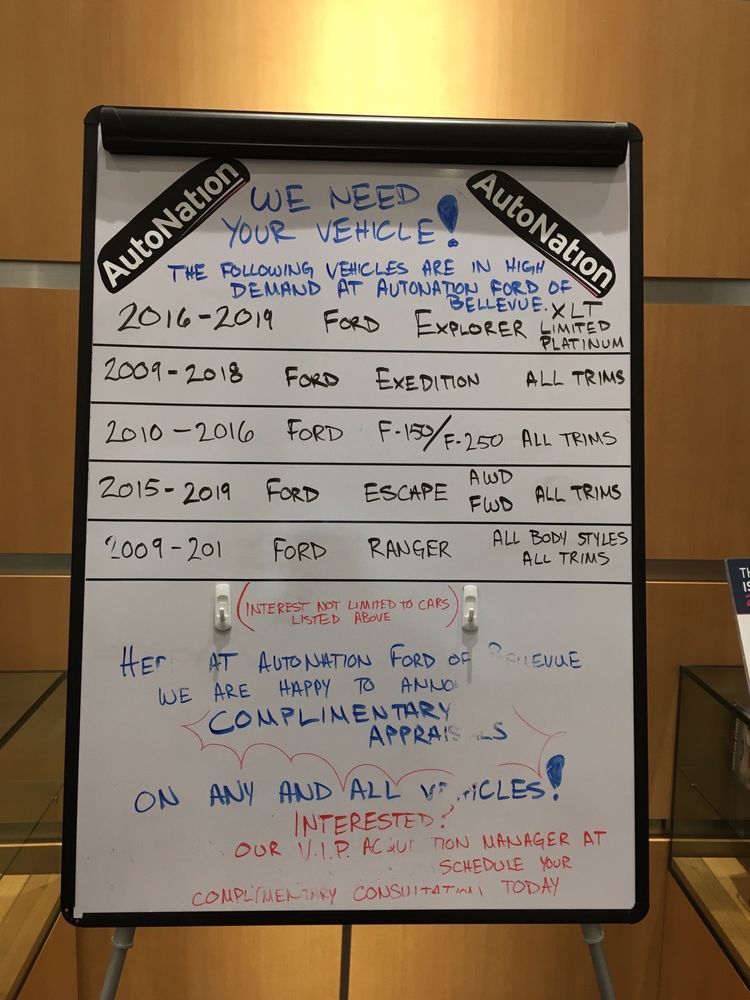 AutoNation
AutoNation
WE NEED
YOUR VEHICLE!
THE FOLLOWING VEHICLES ARE IN HIGH
DEMAND AT AUTONATION FORD OF
BELLEVUE.
2016-2019 FORD EXPLORER XLT
LIMITED
PLATINUM
2009-2018 FORD EXEDITION ALL TRIMS
2010-2016 FORD F-150/F-250 ALL TRIMS
2015-2019 FORD ESCAPE AWD
FWD ALL TRIMS
2009-201 FORD RANGER ALL BODY STYLES
ALL TRIMS
(INTEREST NOT LIMITED TO CARS
LISTED ABOVE)
AT AUTONATION FORD OF BELLEVUE
WE ARE HAPPY TO ANNO
COMPLIMENTARY
APPRAISALS
ON ANY AND ALL VEHICLES!
INTERESTED?
OUR V.I.P. ACQUISITION MANAGER AT
SCHEDULE YOUR
COMPLIMENTARY CONSULTATION TODAY